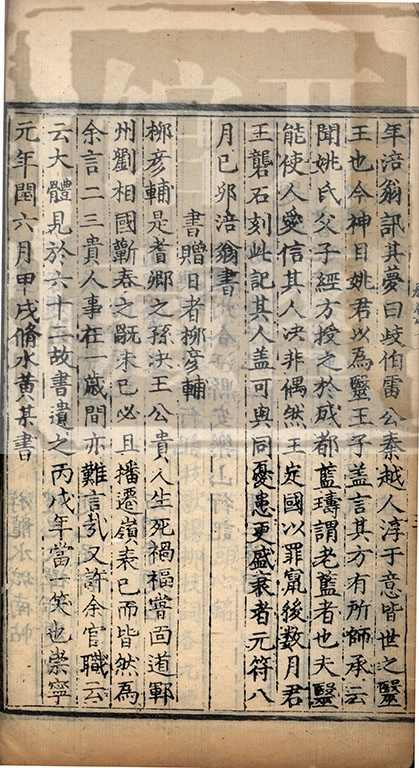 年涪翁訊其夢曰歧伯雷公秦越人淳于意皆世之毉
王也今神目姚君以為毉王子盖言其方有所師承云
聞姚氏父子經方授之於成都藍璹謂老藍者也夫毉
能使人愛信其人决非偶然王定國以罪竄後数月君
王礱石刻此記其人盖可與同憂患更盛衰者元符八
月己夘涪翁書
書贈日者桞彦輔
桞彦輔是耆卿之孫决王公貴人生死禍福嘗面道鄆
州劉相國蘄春之厩未已必且播遷嶺表已而皆然為
余言二三貴人事在一歳間亦難言㢤又許余官職云
云大體見於六十二故書遺之丙戌年當一笑也崇寧
元年閏六月甲戌脩水黄某書